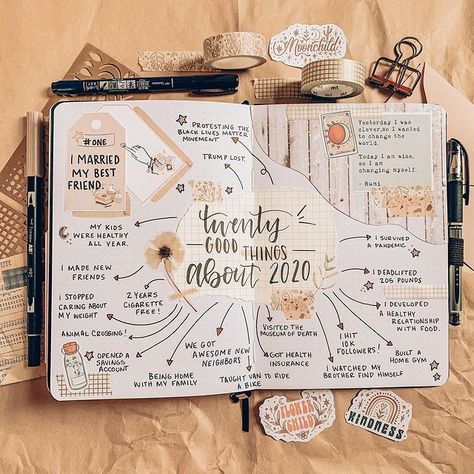 Moonchild
#ONE
I MARRIED
MY BEST
FRIEND.
PROTESTING THE
BLACK LIVES MATTER
MOVEMENT
TRUMP LOST.
MY KIDS
WERE HEALTHY
ALL YEAR.
I MADE NEW
FRIENDS
I STOPPED
CARING ABOUT
MY WEIGHT
2 YEARS
CIGARETTE
FREE!
ANIMAL CROSSING!
OPENED A
SAVINGS
ACCOUNT
BEING HOME
WITH MY FAMILY
WE GOT
AWESOME NEW
NEIGHBORS
TAUGHT VAN TO RIDE
A BIKE
twenty
GOOD THINGS
about 2020
Yesterday I was
clever, so I wanted
to change the
world.
Today I am wise,
so I am
changing myself.
- Rumi
I SURVIVED
A PANDEMIC
I DEADLIFTED
205 POUNDS
I DEVELOPED
A HEALTHY
RELATIONSHIP
WITH FOOD.
VISITED THE
MUSEUM OF DEATH
I HIT
10K
FOLLOWERS!
BUILT A
HOME GYM
GOT HEALTH
INSURANCE
I WATCHED MY
BROTHER FIND HIMSELF
FLOWER
CHILD
KINDNESS